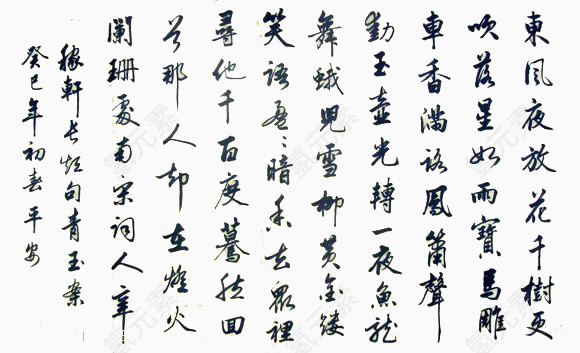 東風夜放花千樹更
吹落星如雨寶馬雕
車香滿路鳳簫聲
動玉壺光轉一夜魚龍
舞蛾兒雪柳黃金縷
笑語盈〻暗香去眾裡
尋他千百度驀然回
首那人却在燈火
闌珊處南宋詞人辛
稼軒長短句青玉案
癸巳年初春平安
氢元素